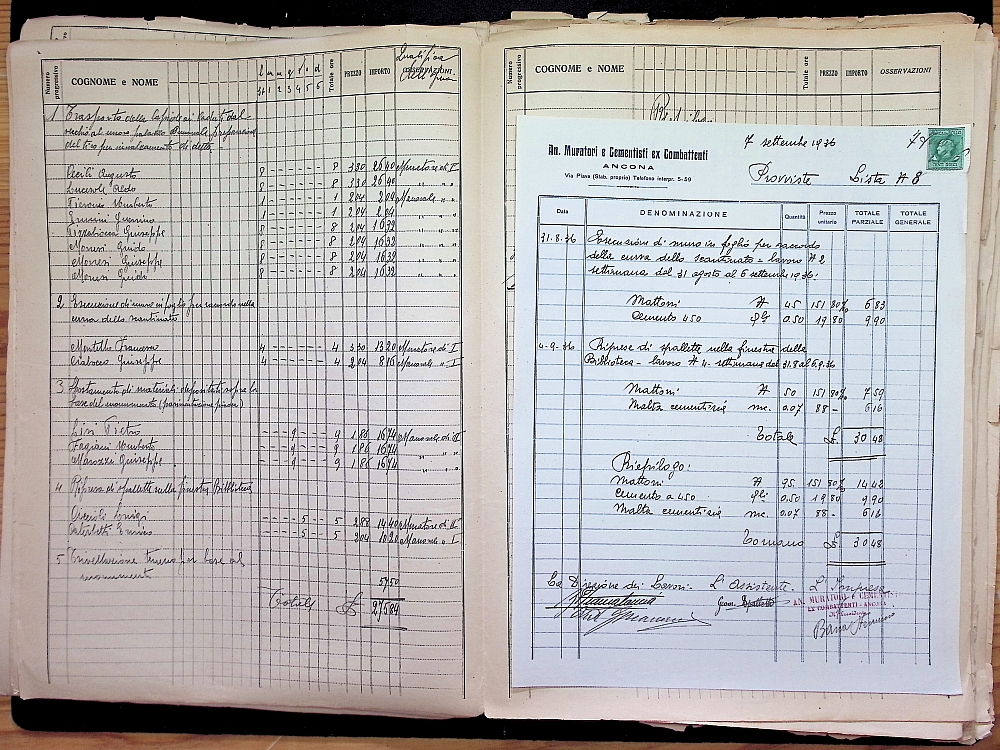 Numero progressivo
COGNOME e NOME
Totale ore
PREZZO
IMPORTO
OSSERVAZIONI
Qualifica
1 Trasporto delle lapidi ai Caduti dal
vecchio al nuovo palazzo Comunale preparazione
del
Ceciti Augusto 8 8 3.30 26.40 Muratore di I
Aldo 8 8 3.30 26.40 " " "
Umberto 1 1 2.04 2.04 Manovale " "
1 1 2.04 2.04 " " "
Giuseppe 8 8 2.04 16.32 " " "
Moresi Guido 8 8 2.04 16.32 " " "
Moresi Giuseppe 8 8 2.04 16.32 " " "
Moresi Guido 8 8 2.04 16.32 " " "
2 Esecuzione di muro in foglio per raccordo nella
curva dello scantinato
Francesco 4 4 3.30 13.20 Muratore di I
Giuseppe 4 4 2.04 8.16 Manovale " I
3 Spostamento di materiali depositati sopra la
base del monumento
Lisi Pietro 9 9 1.86 16.74 Manovale di II
Fagiani Umberto 9 9 1.86 16.74 " " "
Marozzi Giuseppe 9 9 1.86 16.74 " " "
4 Ripresa di spallette nelle finestre Biblioteca
Luigi 5 5 2.88 14.40 Muratore di II
Enrico 5 5 2.04 10.20 Manovale " I
5 Trivellazione terreno per base al
monumento
57.50
Totale £ 275.84
Numero progressivo
COGNOME e NOME
Totale ore
PREZZO
IMPORTO
OSSERVAZIONI
7 settembre 1936
An. Muratori e Cementisti ex Combattenti
ANCONA
Via Piave (Stab. proprio) Telefono interpr. 5-59
Provviste Lista N 8
Data
DENOMINAZIONE
Quantità
Prezzo unitario
TOTALE PARZIALE
TOTALE GENERALE
31-8-36 Esecuzione di muro in foglio per raccordo
della curva dello scantinato - lavoro N 2
settimana dal 31 agosto al 6 settembre 1936:
Mattoni N 45 151 80% 6 83
Cemento 450 qli 0.50 19 80 9 90
4-9-36 Riprese di spallette nelle finestre della
Biblioteca - lavoro N 4 - settimana dal 31.8 al 6.9.36
Mattoni N 50 151 80% 7 59
Malta cementizia mc. 0.07 88 - 6 16
Totale £. 30 48
Riepilogo:
Mattoni N 95 151 80% 14 42
Cemento a 450 qli 0.50 19 80 9 90
Malta cementizia mc. 0.07 88 - 6 16
Tornano £. 30 48
La Direzione dei Lavori L'Assistente L'Impresa
AN. MURATORI E CEMENTISTI
EX COMBATTENTI - ANCONA